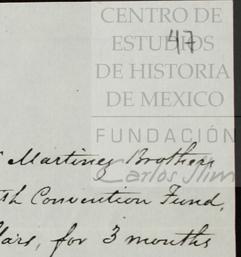 CENTRO DE
ESTUDIOS
47
DE HISTORIA
DE MEXICO
FUNDACIÓN
Carlos Slim
Martinez Brothers
th Convention Fund,
lars, for 3 months